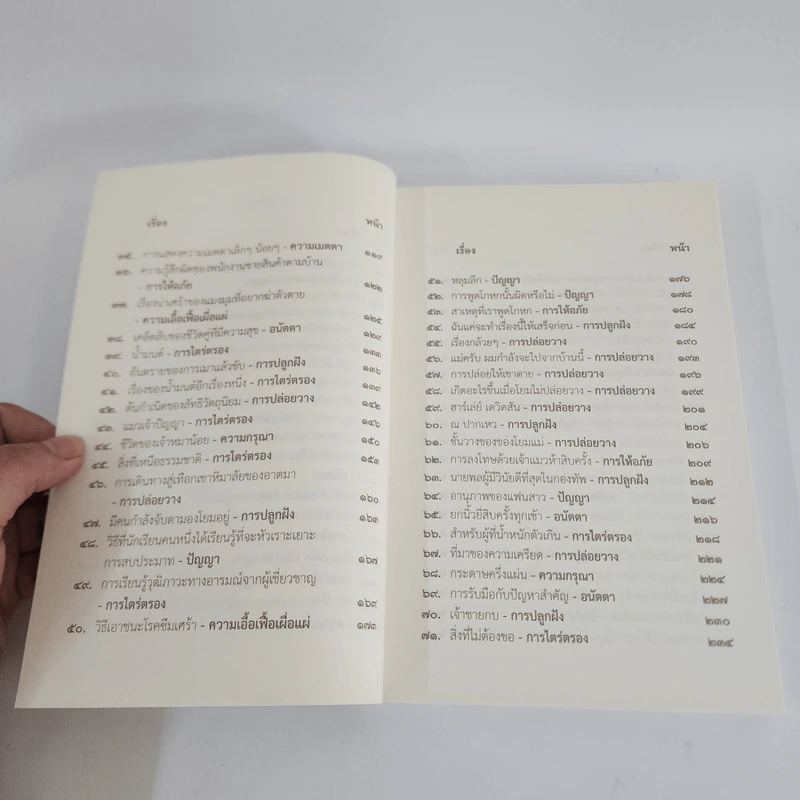 เรื่อง หน้า
๓๕. การแสดงความเมตตาเล็กๆ น้อยๆ - ความเมตตา ๑๑๙
๓๖. ความรู้สึกผิดของพนักงานขายสินค้าตามบ้าน
- การให้อภัย ๑๒๒
๓๗. เรื่องน่าเศร้าของแมงมุมที่อยากฆ่าตัวตาย
- ความเอื้อเฟื้อเผื่อแผ่ ๑๒๕
๓๘. เคล็ดลับของชีวิตคู่ที่มีความสุข - อนัตตา ๑๒๙
๓๙. น้ำมนต์ - การไตร่ตรอง ๑๓๓
๔๐. อันตรายของการเมาแล้วขับ - การปลูกฝัง ๑๓๗
๔๑. เรื่องของน้ำมนต์อีกเรื่องหนึ่ง - การไตร่ตรอง ๑๓๙
๔๒. ต้นกำเนิดของลัทธิวัตถุนิยม - การปล่อยวาง ๑๔๒
๔๓. แมวเจ้าปัญญา - การไตร่ตรอง ๑๔๖
๔๔. ชีวิตของเจ้าหมาน้อย - ความกรุณา ๑๕๐
๔๕. สิ่งที่เหนือธรรมชาติ - การไตร่ตรอง ๑๕๓
๔๖. การเดินทางสู่เทือกเขาหิมาลัยของอาตมา
- การปล่อยวาง ๑๖๐
๔๗. มีคนกำลังจับตามองโยมอยู่ - การปลูกฝัง ๑๖๓
๔๘. วิธีที่นักเรียนคนหนึ่งได้เรียนรู้ที่จะหัวเราะเยาะ
การสบประมาท - ปัญญา ๑๖๗
๔๙. การเรียนรู้วุฒิภาวะทางอารมณ์จากผู้เชี่ยวชาญ
- การไตร่ตรอง ๑๖๙
๕๐. วิธีเอาชนะโรคซึมเศร้า - ความเอื้อเฟื้อเผื่อแผ่ ๑๗๓
เรื่อง หน้า
๕๑. หลุมลึก - ปัญญา ๑๗๖
๕๒. การพูดโกหกนั้นผิดหรือไม่ - ปัญญา ๑๗๘
๕๓. สาเหตุที่เราพูดโกหก - การให้อภัย ๑๘๐
๕๔. ฉันแค่จะทำเรื่องนี้ให้เสร็จก่อน - การปลูกฝัง ๑๘๔
๕๕. เรื่องกล้วยๆ - การปล่อยวาง ๑๙๐
๕๖. แม่ครับ ผมกำลังจะไปจากบ้านนี้ - การปล่อยวาง ๑๙๓
๕๗. การปล่อยให้เขาตาย - การปล่อยวาง ๑๙๖
๕๘. เกิดอะไรขึ้นเมื่อโยมไม่ปล่อยวาง - การปล่อยวาง ๑๙๙
๕๙. ฮาร์เลย์ เดวิดสัน - การปล่อยวาง ๒๐๑
๖๐. ณ ปากเหว - การปลูกฝัง ๒๐๔
๖๑. ชั้นวางของของโยมแม่ - การปล่อยวาง ๒๐๖
๖๒. การลงโทษด้วยเจ้าแมวห้าสิบครั้ง - การให้อภัย ๒๐๙
๖๓. นายพลผู้มีวินัยดีที่สุดในกองทัพ - การปลูกฝัง ๒๑๒
๖๔. อานุภาพของแฟนสาว - ปัญญา ๒๑๔
๖๕. ยกนิ้วยี่สิบครั้งทุกเช้า - อนัตตา ๒๑๖
๖๖. สำหรับผู้ที่น้ำหนักตัวเกิน - การไตร่ตรอง ๒๑๘
๖๗. ที่มาของความเครียด - การปล่อยวาง ๒๒๑
๖๘. กระดาษครึ่งแผ่น - ความกรุณา ๒๒๔
๖๙. การรับมือกับปัญหาสำคัญ - อนัตตา ๒๒๗
๗๐. เจ้าชายกบ - การปลูกฝัง ๒๓๐
๗๑. สิ่งที่ไม่ต้องขอ - การไตร่ตรอง ๒๓๕